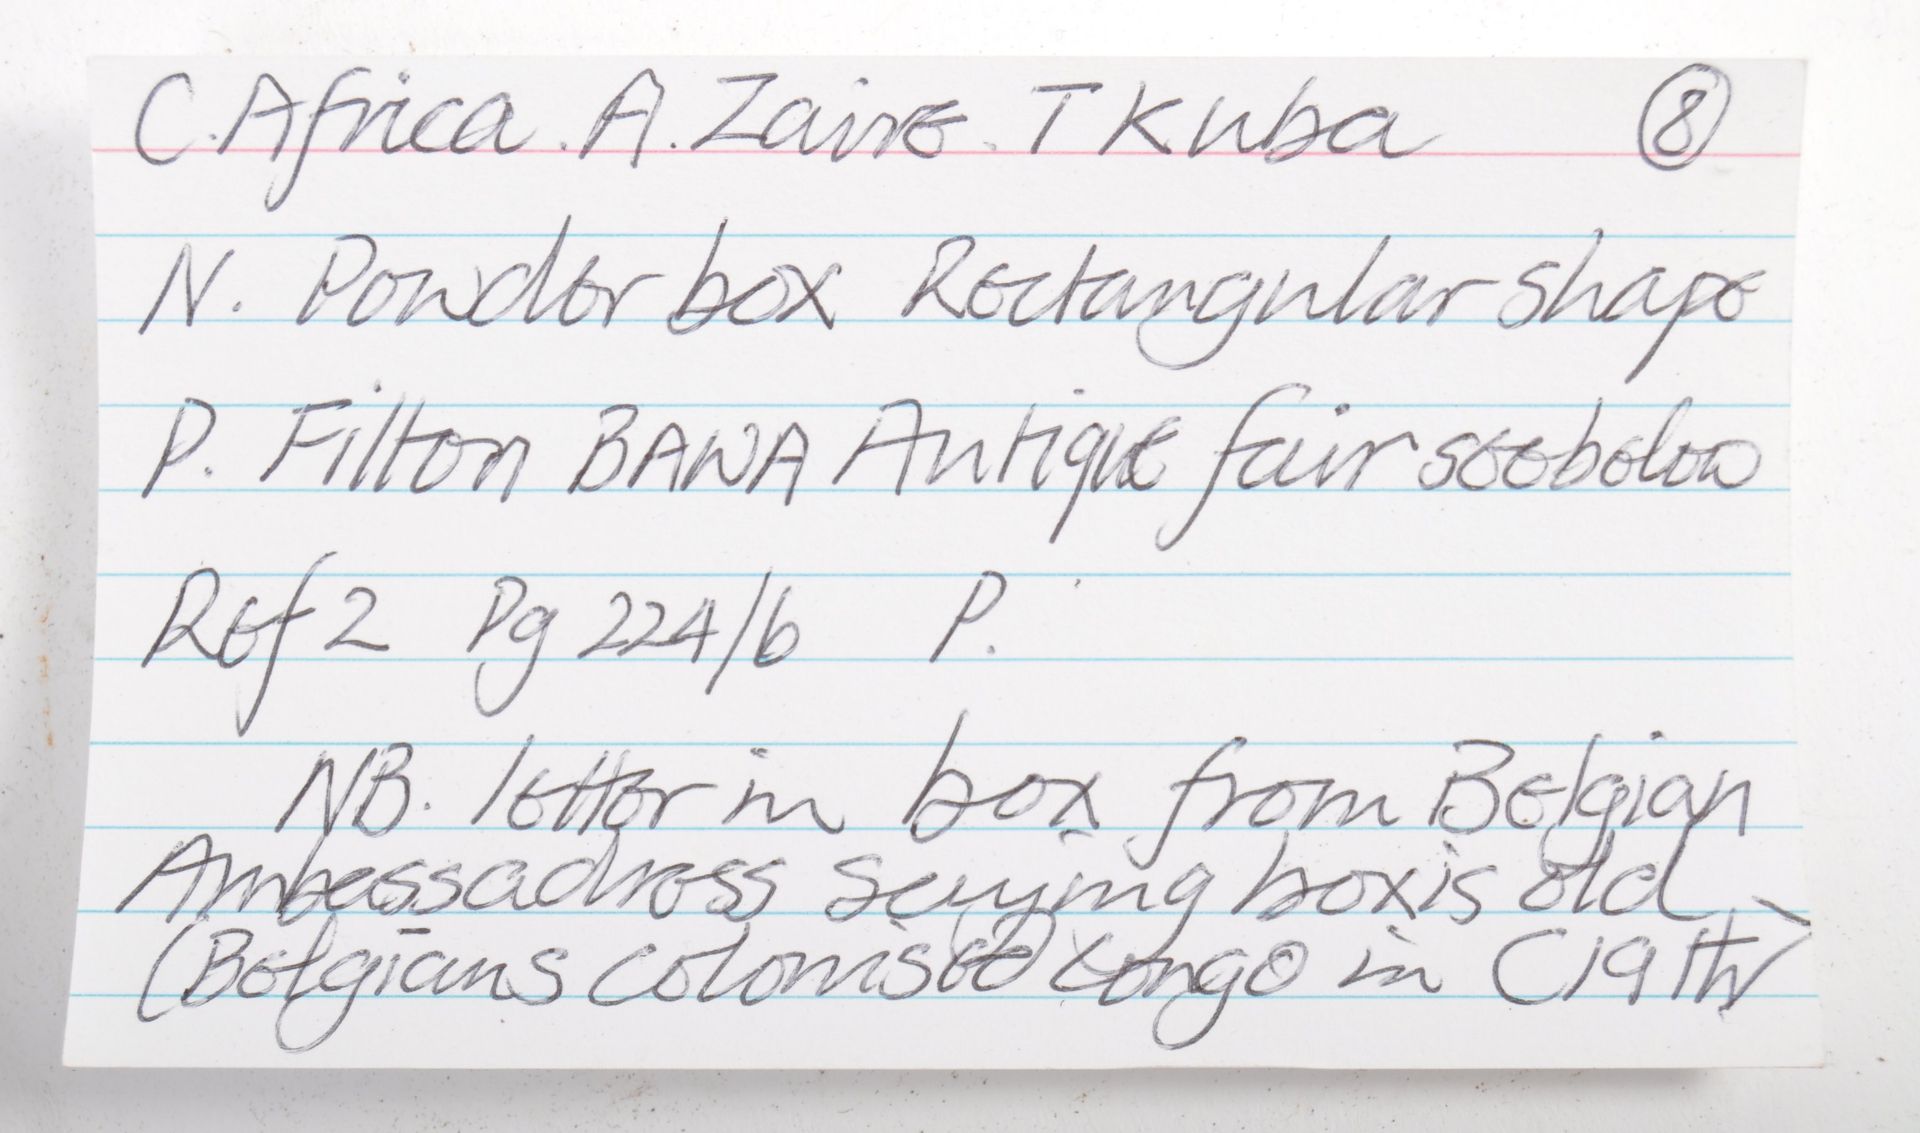 C. Africa. A. Zaire. T Kuba 8
N. Powder box Rectangular shape
P. Filton BAWA Antique fair see below
Ref 2 Pg 224/6 P.
NB. letter in box from Belgian
Ambassadress saying box is old
(Belgians colonised Congo in C19th)